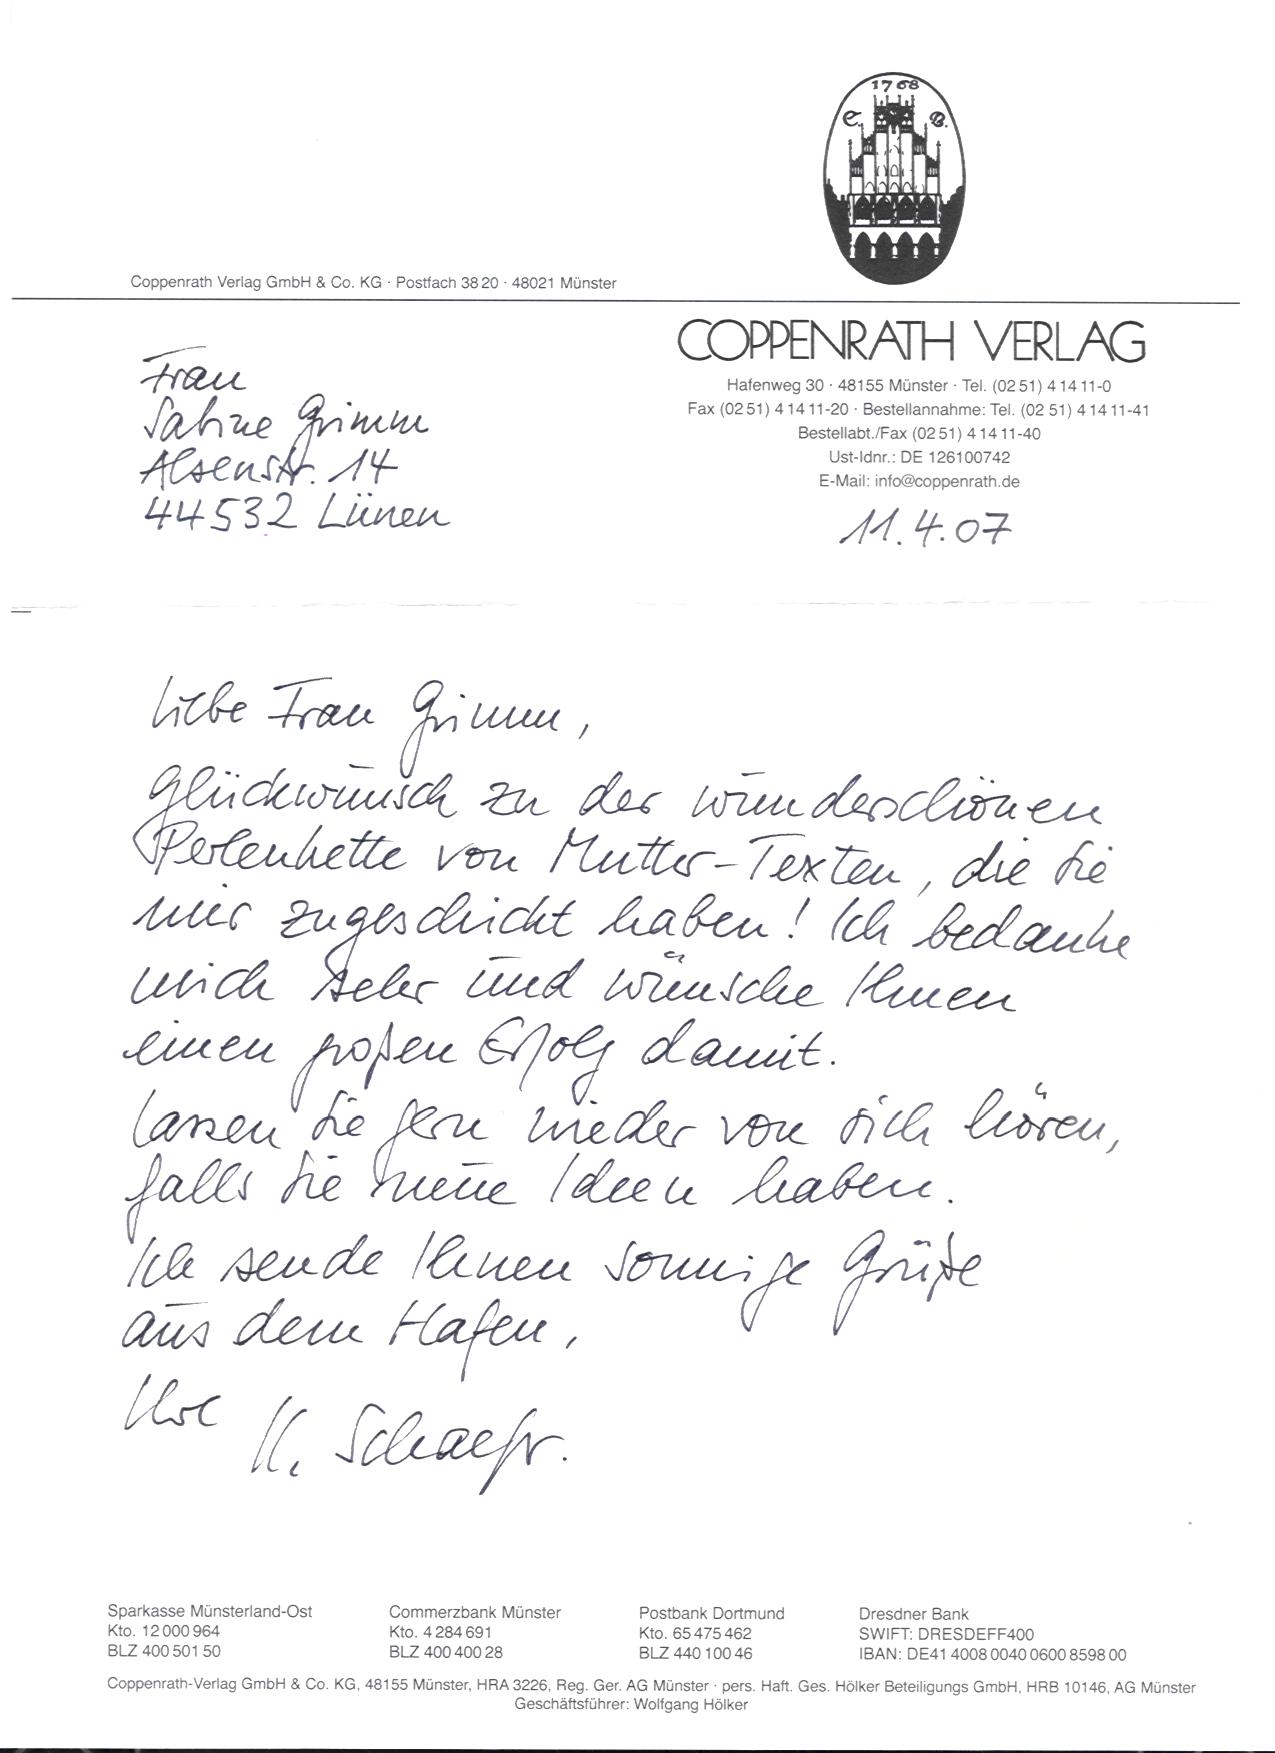 1768
C. B.
Coppenrath Verlag GmbH & Co. KG · Postfach 38 20 · 48021 Münster
COPPENRATH VERLAG
Hafenweg 30 · 48155 Münster · Tel. (02 51) 4 14 11-0
Fax (02 51) 4 14 11-20 · Bestellannahme: Tel. (02 51) 4 14 11-41
Bestellabt./Fax (02 51) 4 14 11-40
Ust-Idnr.: DE 126100742
E-Mail: info@coppenrath.de
Frau
Sabine Grimm
Alsenstr. 14
44532 Lünen
11.4.07
Liebe Frau Grimm,
Glückwunsch zu der wunderschönen
Perlenkette von Mutter-Texten, die Sie
mir zugeschickt haben! Ich bedanke
mich sehr und wünsche Ihnen
einen großen Erfolg damit.
Lassen Sie gern wieder von sich hören,
falls Sie neue Ideen haben.
Ich sende Ihnen sonnige Grüße
aus dem Hafen,
Ihre K. Schaefer.
Sparkasse Münsterland-Ost
Kto. 12 000 964
BLZ 400 501 50
Commerzbank Münster
Kto. 4 284 691
BLZ 400 400 28
Postbank Dortmund
Kto. 65 475 462
BLZ 440 100 46
Dresdner Bank
SWIFT: DRESDEFF400
IBAN: DE41 4008 0040 0600 8598 00
Coppenrath-Verlag GmbH & Co. KG, 48155 Münster, HRA 3226, Reg. Ger. AG Münster · pers. Haft. Ges. Hölker Beteiligungs GmbH, HRB 10146, AG Münster
Geschäftsführer: Wolfgang Hölker